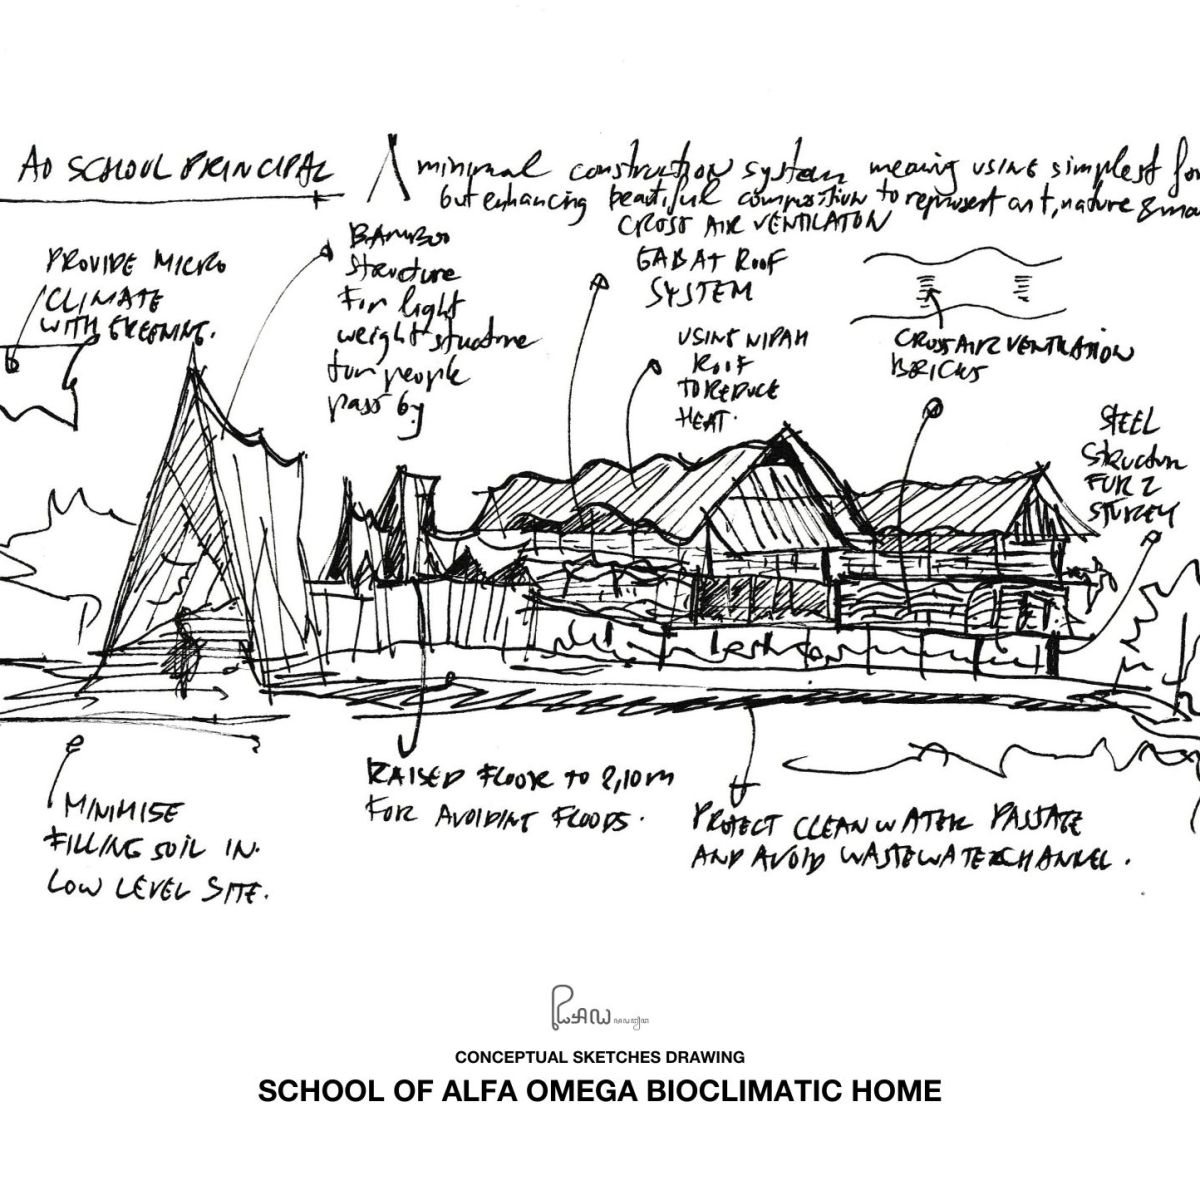 AO SCHOOL PRINCIPAL
minimal construction system meaning using simplest for
but enhancing beautiful composition to represent art, nature & ma
CROSS AIR VENTILATON
GABAT ROOF
SYSTEM
PROVIDE MICRO
CLIMATE
WITH GREENING.
BAMBOO
structure
for light
weight structure
for people
pass by
USING NIPAH
ROOF
TO REDUCE
HEAT.
CROSS AIR VENTILATION
BRICKS
STEEL
STRUCTURE
FOR 2
STOREY
MINIMISE
FILLING SOIL IN
LOW LEVEL SITE.
RAISED FLOOR TO 2,10m
FOR AVOIDING FLOODS.
PROTECT CLEAN WATER PASSAGE
AND AVOID WASTEWATER CHANNEL.
CONCEPTUAL SKETCHES DRAWING
SCHOOL OF ALFA OMEGA BIOCLIMATIC HOME